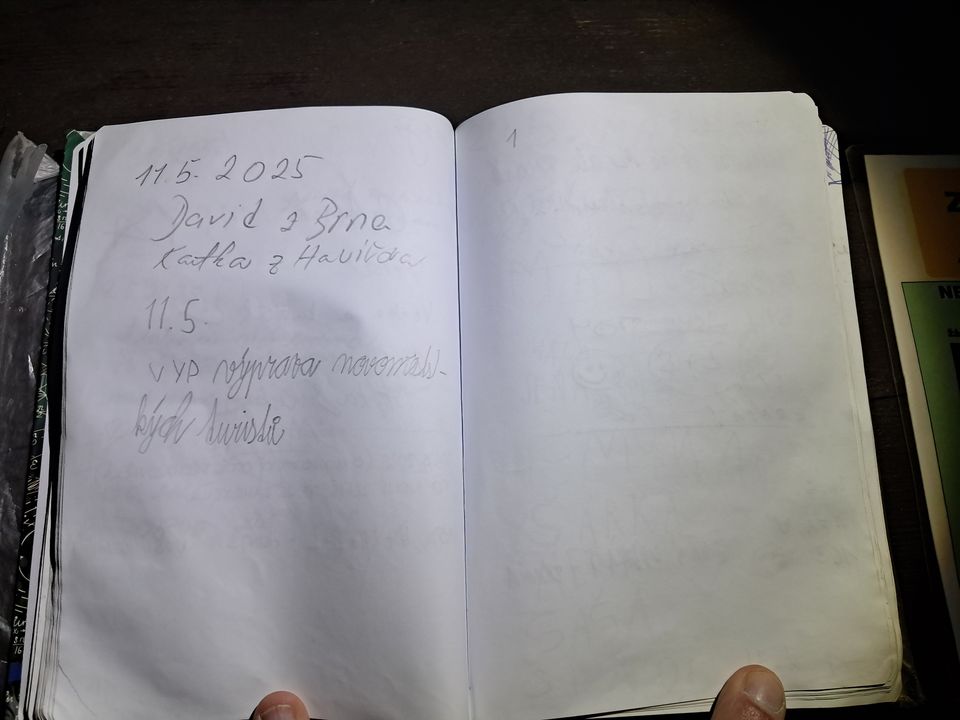 11.5. 2025
David z Brna
Katka z Havířova
11.5.
VYP výprava novoměst-
kých turistů
1
NE